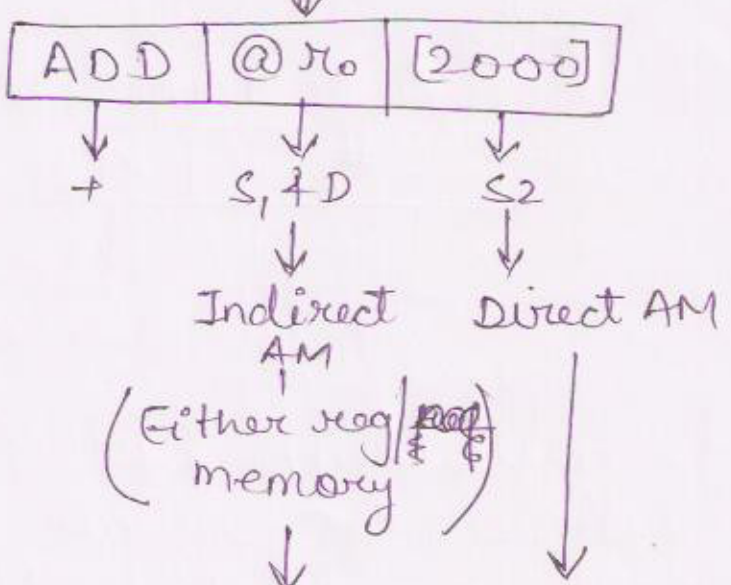 ADD @r0 [2000]
+ S1 & D S2
Indirect Direct AM
AM
(Either reg/
memory)